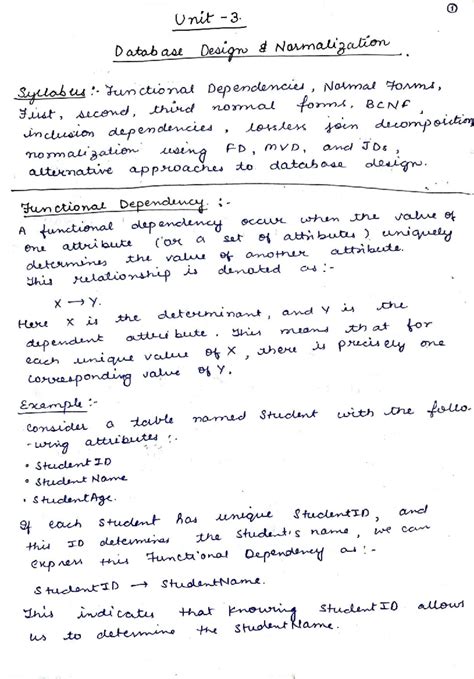 ①
Unit - 3.
Database Design & Normalization
Syllabus :- Functional Dependencies, Normal Forms,
First, second, third normal forms, BCNF,
inclusion dependencies, lossless join decompoiction
normalization using FD, MVD, and JDs,
alternative approaches to database design.
Functional Dependency. :-
A functional dependency occur when the value of
one attribute (or a set of attributes) uniquely
determines the value of another attribute.
This relationship is denoted as :-
X → Y.
Here X is the determinant, and Y is the
dependent attribute. This means that for
each unique value of X, there is precisely one
corresponding value of Y.
Example :-
Consider a table named Student with the follo-
-wing attributes :.
• Student ID
• Student Name
• StudentAge.
If each Student has unique StudentID, and
this ID determines the Student's name, we can
express this Functional Dependency as :-
StudentID → StudentName.
This indicates that knowing StudentID allows
us to determine the StudentName.